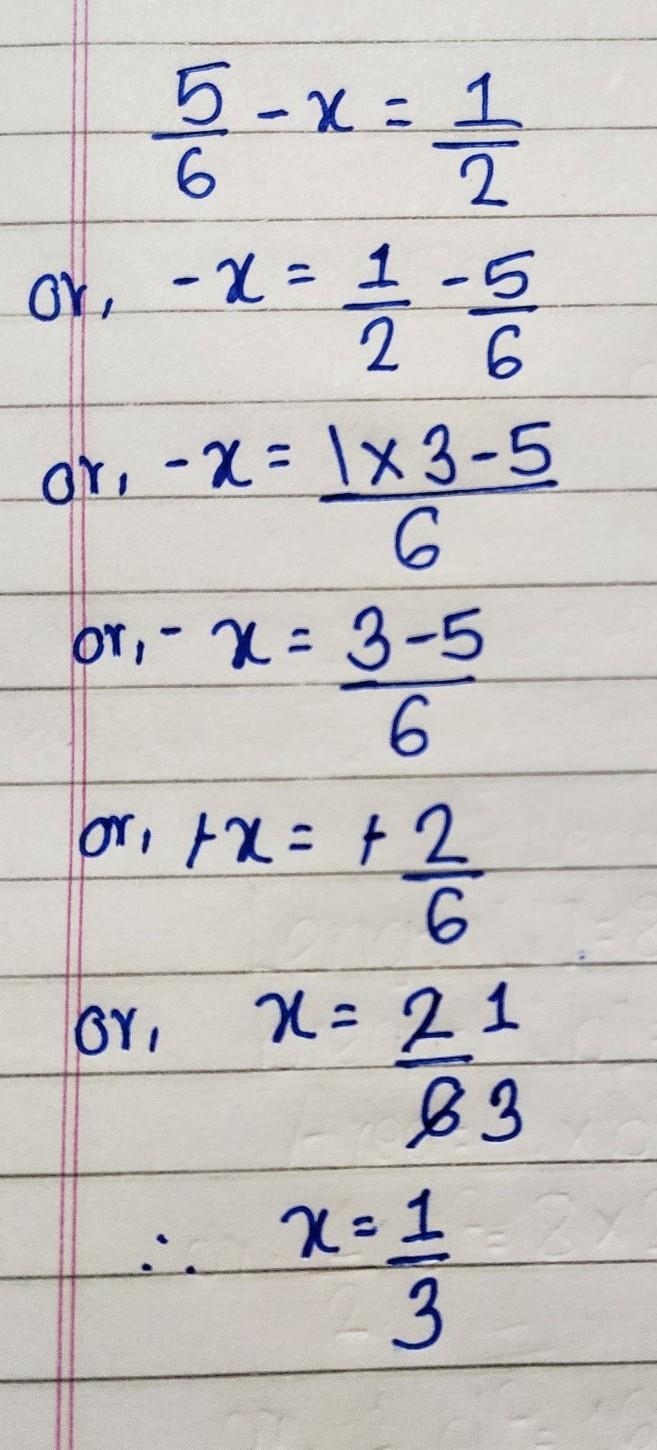 5/6 - x = 1/2
or, -x = 1/2 - 5/6
or, -x = 1×3-5/6
or, - x = 3-5/6
or, +x = + 2/6
or, x = 2 1/6 3
∴ x = 1/3